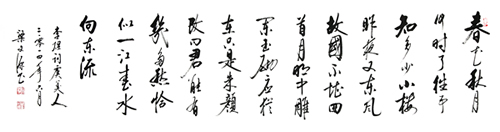 春花秋月
何时了往事
知多少小楼
昨夜又东风
故國不堪回
首月明中雕
阑玉砌应犹
在只是朱颜
改问君能有
几多愁恰
似一江春水
向东流
李煜词虞美人
二〇一四年六月